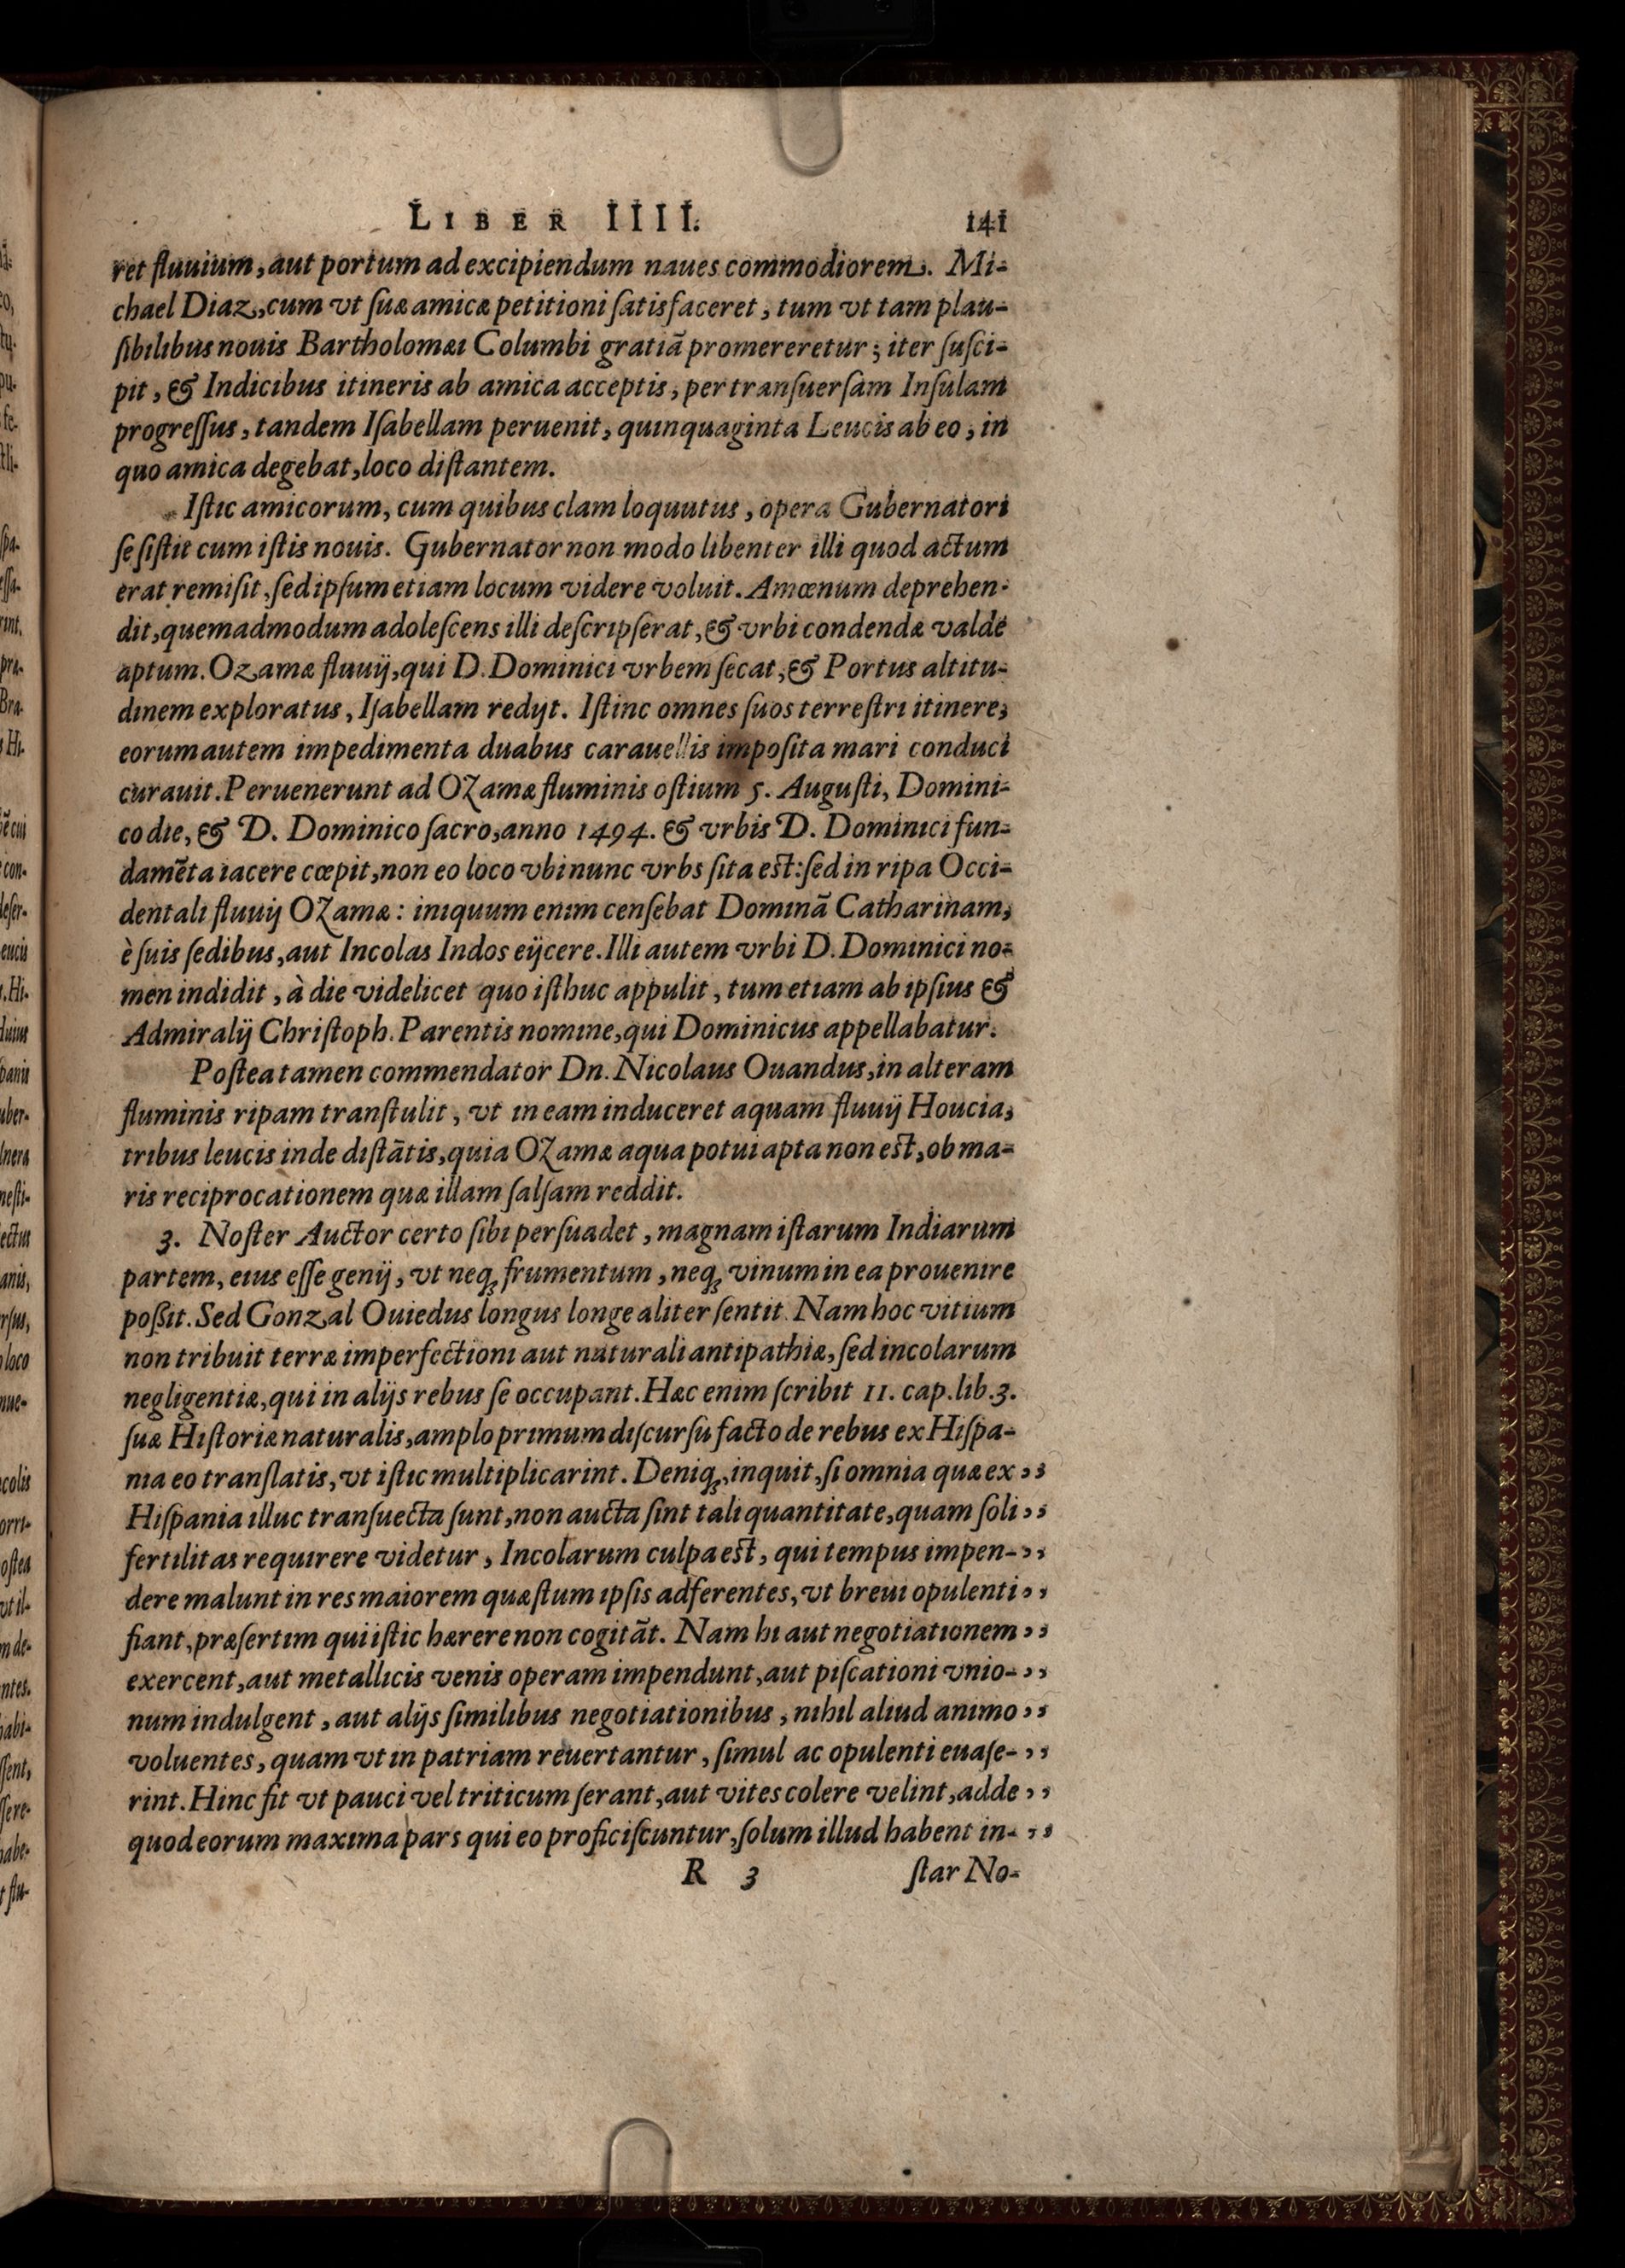 LIBER IIII. 141
ret fluuium, aut portum ad excipiendum naues commodiorem. Mi-
chael Diaz, cum vt ſuæ amicæ petitioni ſatisfaceret, tum vt tam plau-
ſibilibus nouis Bartholomæi Columbi gratiā promereretur; iter ſuſci-
pit, & Indicibus itineris ab amica acceptis, per tranſuerſam Inſulam
progreſſus, tandem Iſabellam peruenit, quinquaginta Leucis ab eo, in
quo amica degebat, loco diſtantem.
Iſtic amicorum, cum quibus clam loquutus, opera Gubernatori
ſe ſiſtit cum iſtis nouis. Gubernator non modo libenter illi quod actum
erat remiſit, ſed ipſum etiam locum videre voluit. Amœnum deprehen-
dit, quemadmodum adoleſcens illi deſcripſerat, & vrbi condendæ valdè
aptum. Ozamæ fluuij, qui D. Dominici vrbem ſecat, & Portus altitu-
dinem exploratus, Iſabellam redijt. Iſtinc omnes ſuos terreſtri itinere,
eorum autem impedimenta duabus carauellis impoſita mari conduci
curauit. Peruenerunt ad Ozamæ fluminis oſtium 5. Auguſti, Domini-
co die, & D. Dominico ſacro, anno 1494. & vrbis D. Dominici fun-
damēta iacere cœpit, non eo loco vbi nunc vrbs ſita eſt: ſed in ripa Occi-
dentali fluuij Ozamæ: iniquum enim cenſebat Dominā Catharinam,
è ſuis ſedibus, aut Incolas Indos eijcere. Illi autem vrbi D. Dominici no-
men indidit, à die videlicet quo iſthuc appulit, tum etiam ab ipſius &
Admiralij Chriſtoph. Parentis nomine, qui Dominicus appellabatur.
Poſtea tamen commendator Dn. Nicolaus Ouandus, in alteram
fluminis ripam tranſtulit, vt in eam induceret aquam fluuij Houcia,
tribus leucis inde diſtātis, quia Ozamæ aqua potui apta non eſt, ob ma-
ris reciprocationem quæ illam ſalſam reddit.
3. Noſter Auctor certo ſibi perſuadet, magnam iſtarum Indiarum
partem, eius eſſe genij, vt neq; frumentum, neq; vinum in ea prouenire
poßit. Sed Gonzal Ouiedus longus longe aliter ſentit. Nam hoc vitium
non tribuit terræ imperfectioni aut naturali antipathiæ, ſed incolarum
negligentiæ, qui in alijs rebus ſe occupant. Hæc enim ſcribit 11. cap. lib. 3.
ſuæ Hiſtoriæ naturalis, amplo primum diſcurſu facto de rebus ex Hiſpa-
nia eo tranſlatis, vt iſtic multiplicarint. Deniq;, inquit, ſi omnia quæ ex ,,
Hiſpania illuc tranſuecta ſunt, non aucta ſint tali quantitate, quam ſoli ,,
fertilitas requirere videtur, Incolarum culpa eſt, qui tempus impen- ,,
dere malunt in res maiorem quæſtum ipſis adferentes, vt breui opulenti ,,
fiant, præſertim qui iſtic hærere non cogitāt. Nam hi aut negotiationem ,,
exercent, aut metallicis venis operam impendunt, aut piſcationi vnio- ,,
num indulgent, aut alijs ſimilibus negotiationibus, nihil aliud animo ,,
voluentes, quam vt in patriam reuertantur, ſimul ac opulenti euaſe- ,,
rint. Hinc fit vt pauci vel triticum ſerant, aut vites colere velint, adde ,,
quod eorum maxima pars qui eo proficiſcuntur, ſolum illud habent in- ,,
R 3 ſtar No-